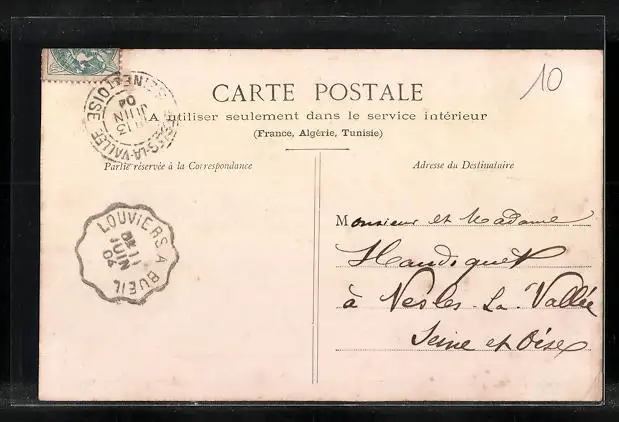 CARTE POSTALE
A utiliser seulement dans le service intérieur
(France, Algérie, Tunisie)
Partie réservée à la Correspondance
Adresse du Destinataire
10
LA-VALLEE SEINE-ET-OISE
13
JUIN
04
LOUVIERS A BUEIL
11
JUIN
04
Monsieur et Madame
à Nesles-La-Vallée
Seine et Oise